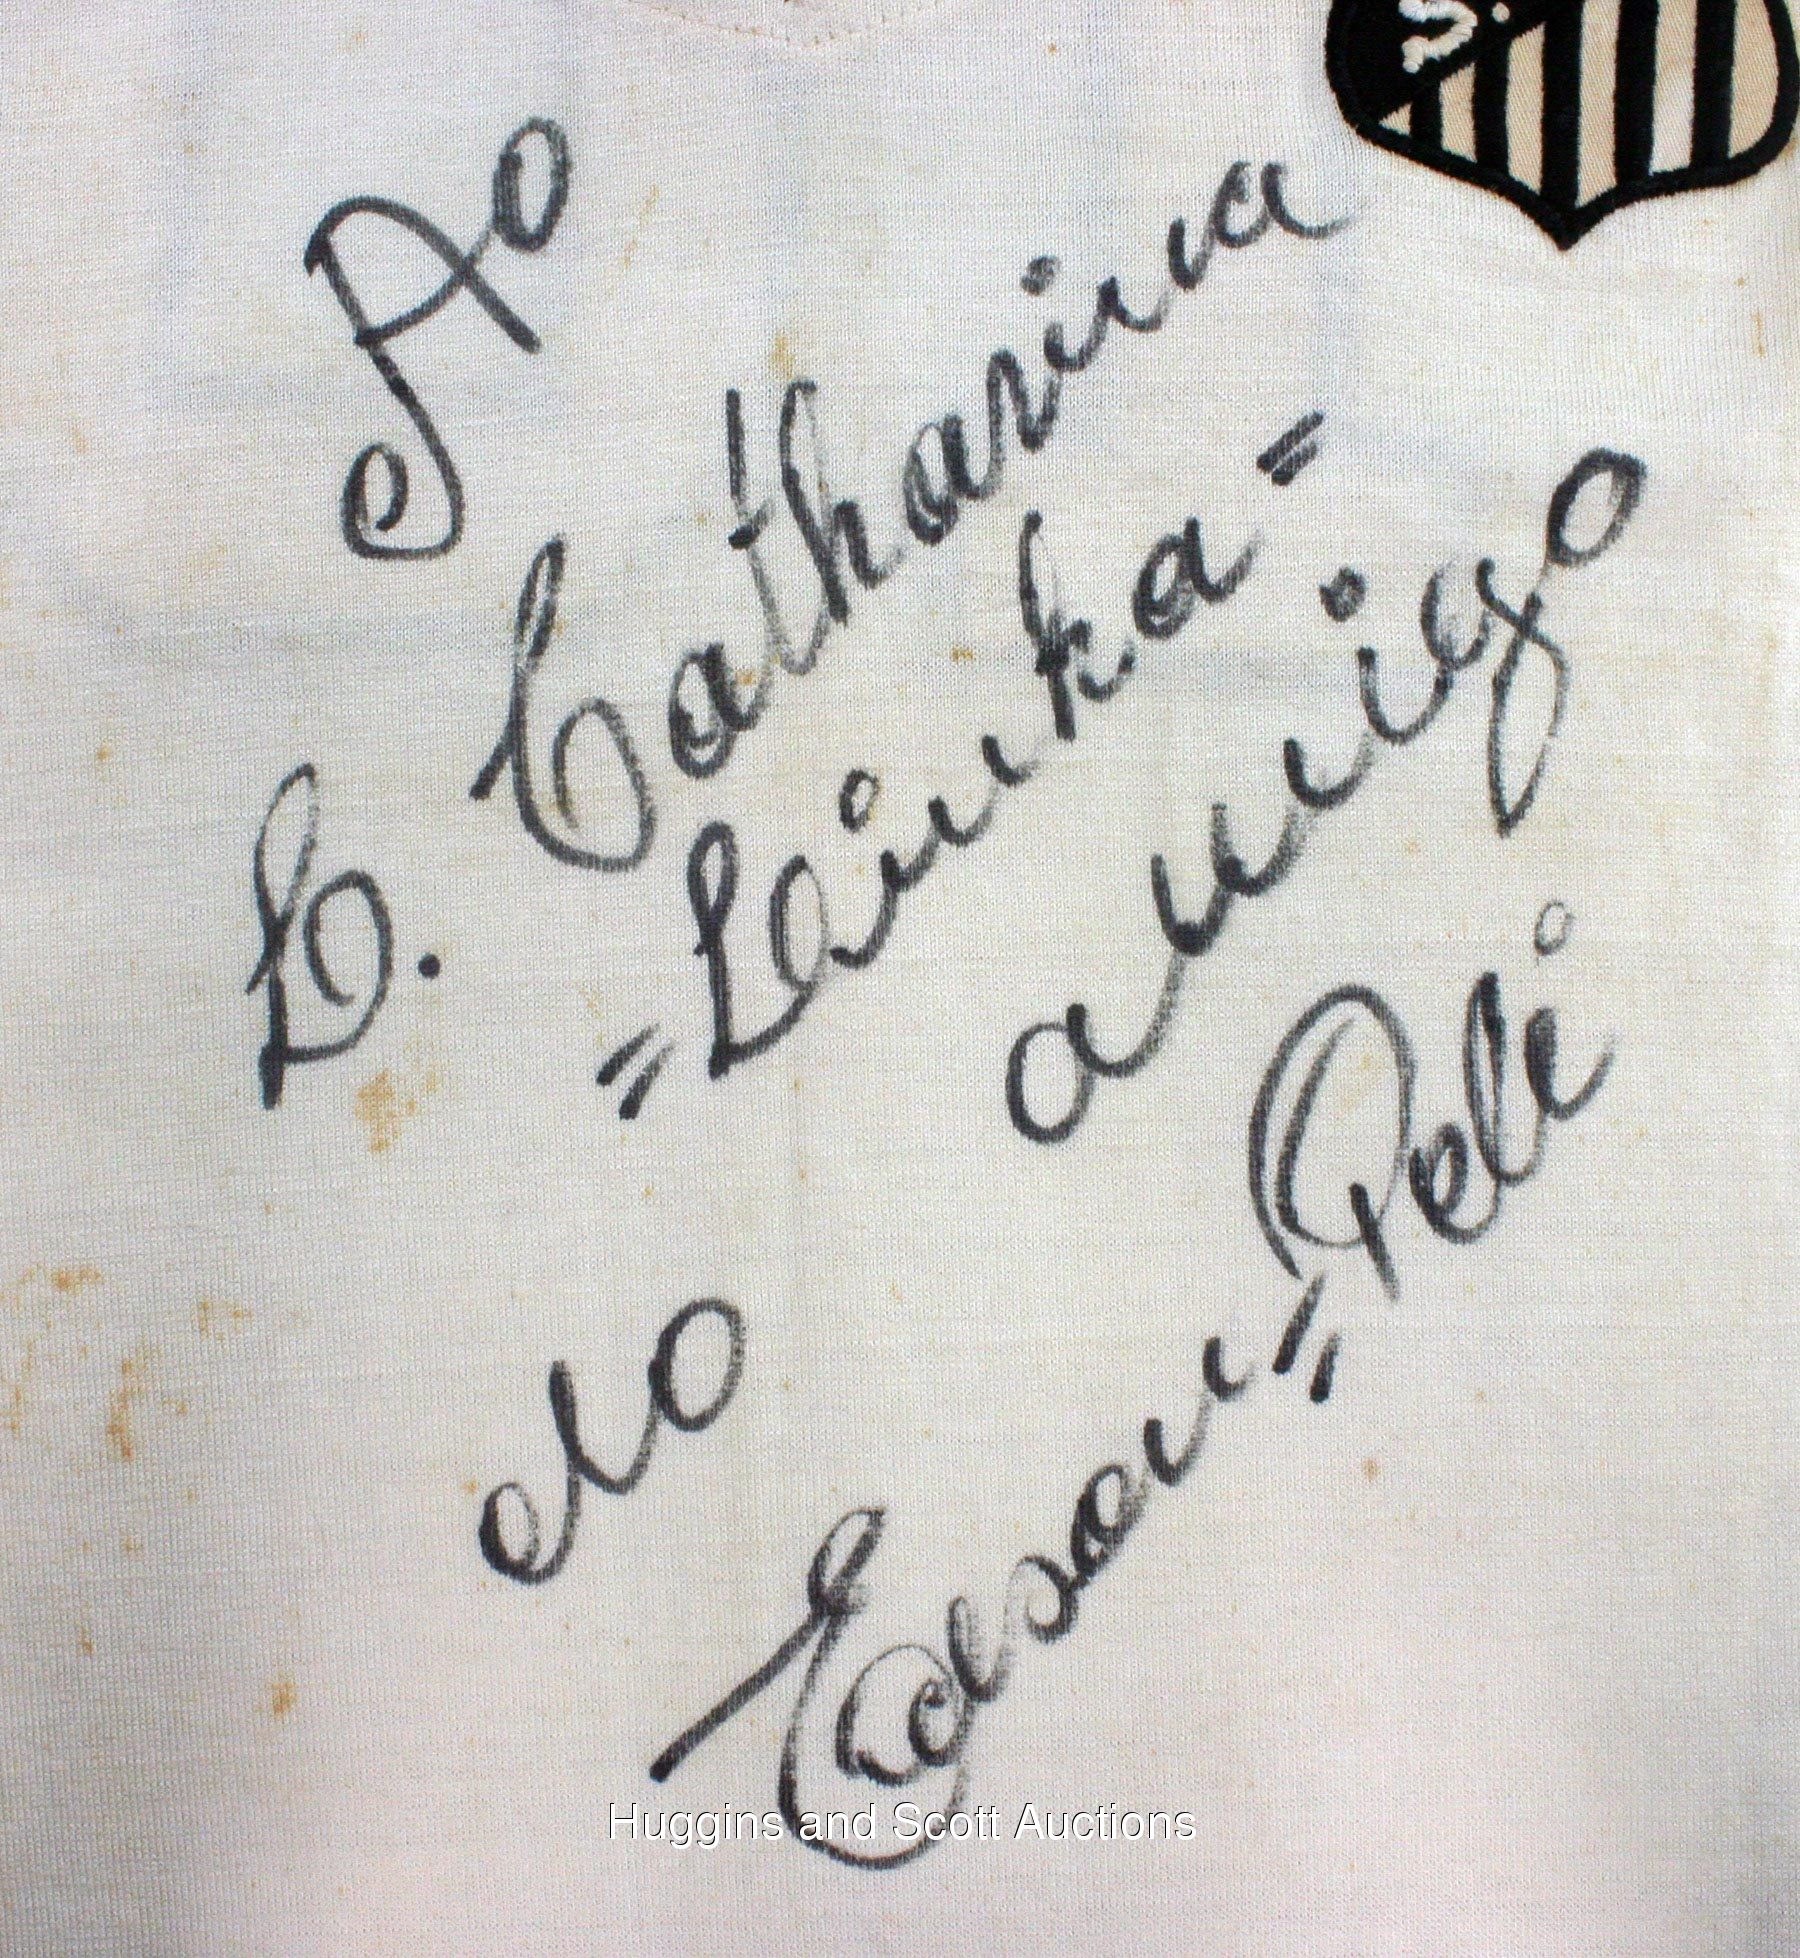 Ao
L. Catharina
=Leinka=
do amigo
Edson=Pelé
Huggins and Scott Auctions